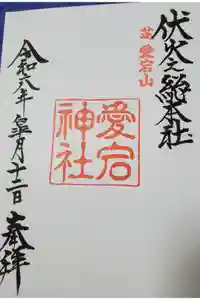 伏火之総本社
芝愛宕山
愛宕神社
奉拝
令和六年皐月十二日